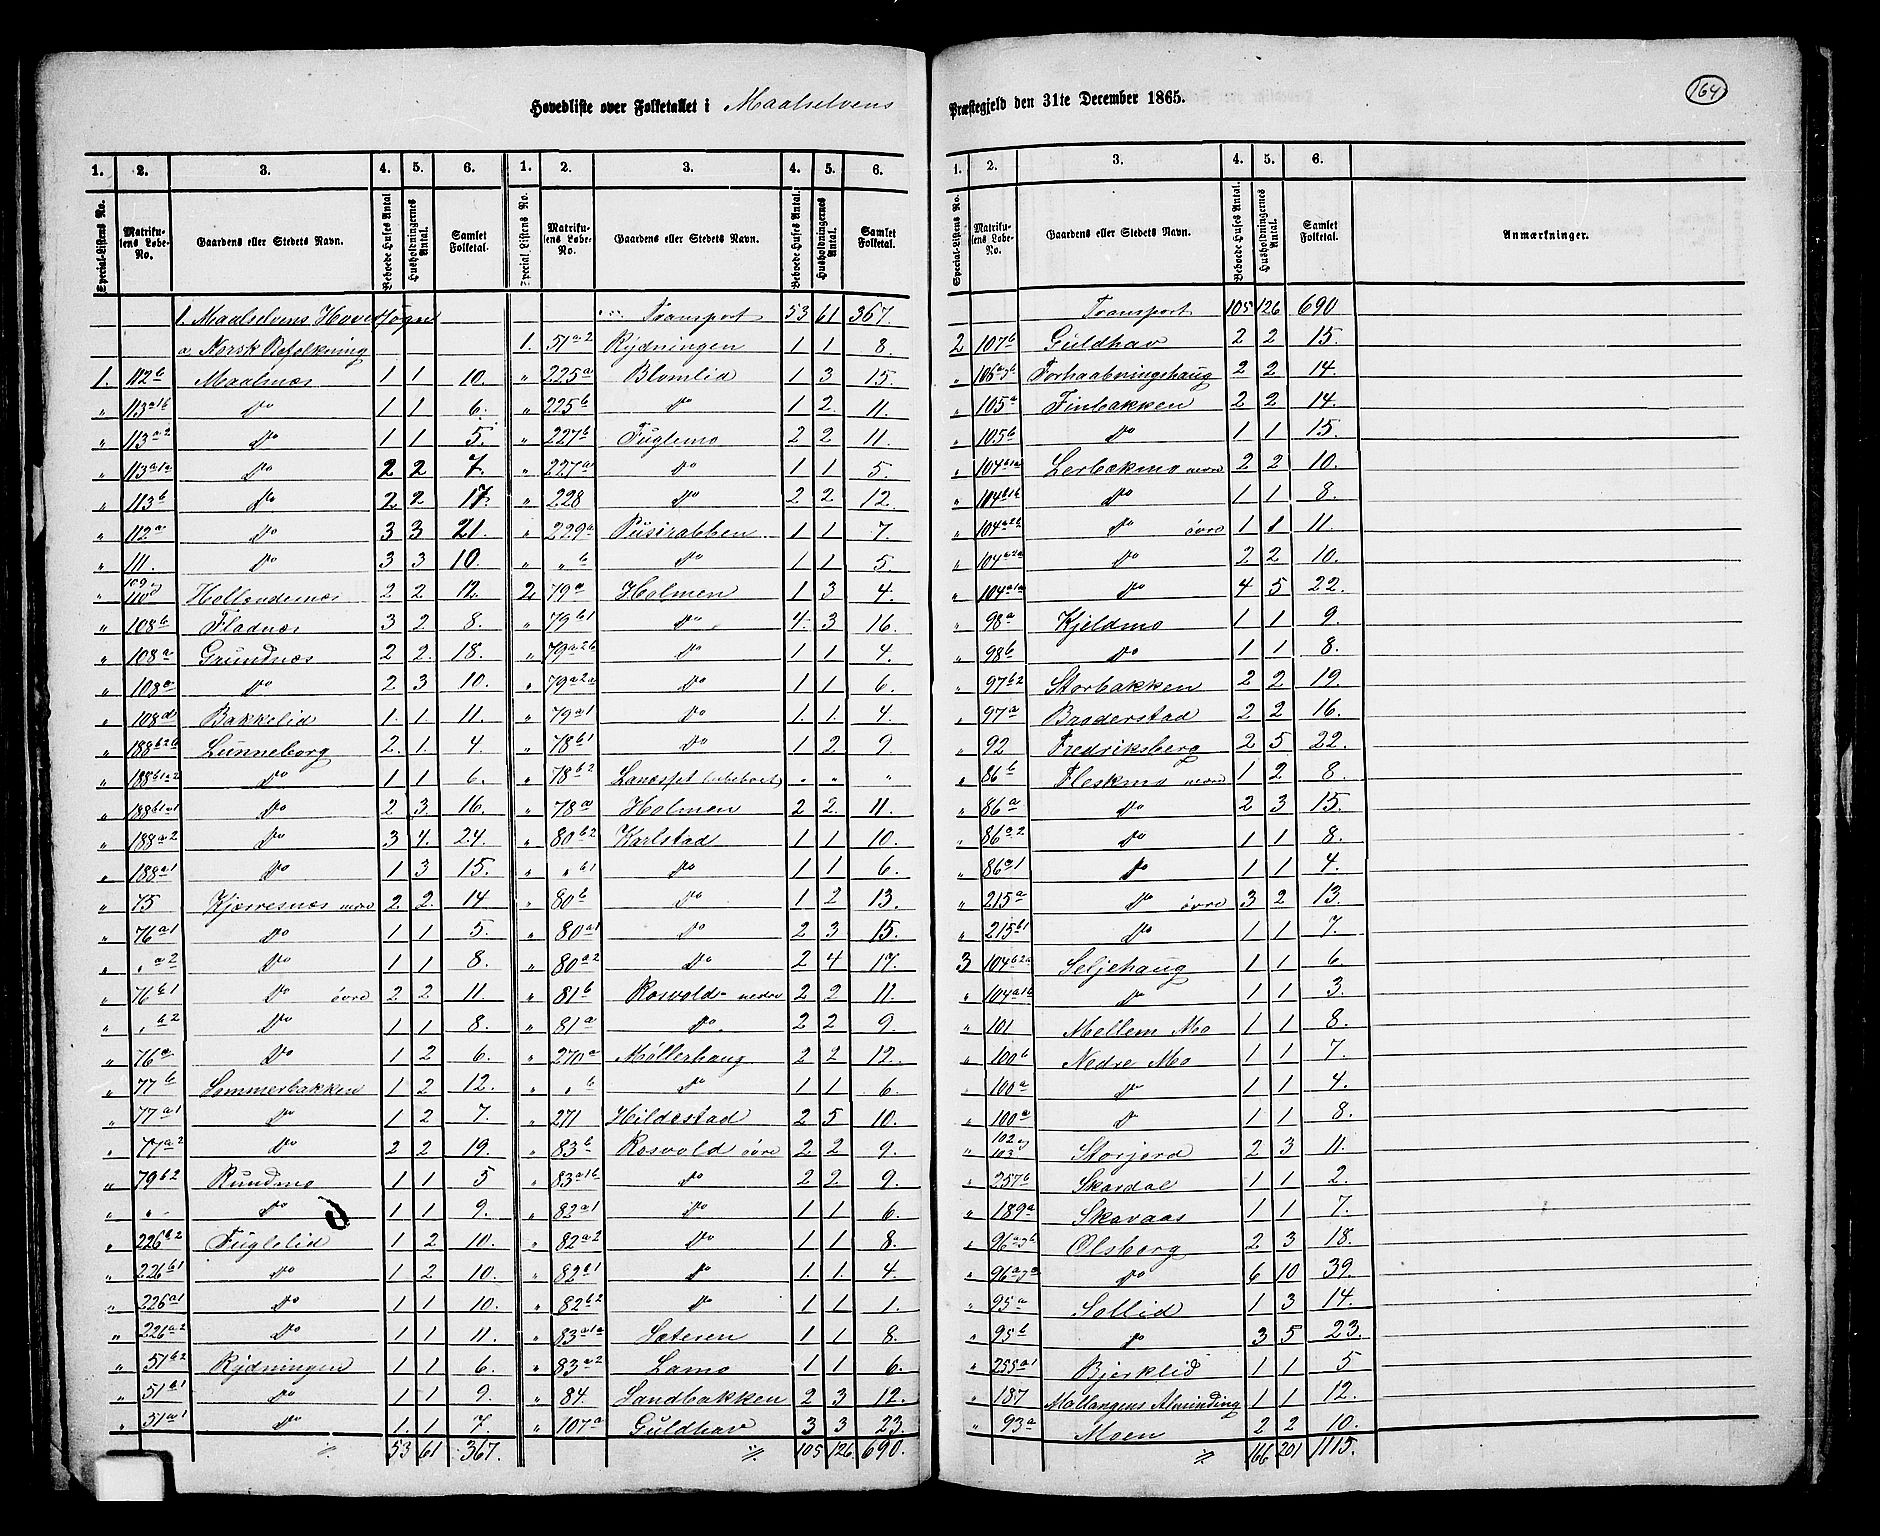 Hovedliste over Folketallet i Maalselvens Præstegjeld den 31te December 1865.
164
1. 2. 3. 4. 5. 6. 1. 2. 3. 4. 5. 6.
Special-Listens No. Matrikulens Løbe-No. Gaardens eller Stedets Navn. Beboede Huses Antal Husholdningernes Antal. Samlet Folketal. Special-Listens No. Matrikulens Løbe-No. Gaardens eller Stedets Navn. Beboede Huses Antal. Husholdningernes Antal. Samlet Folketal.
1. Maalselvens Hovedsogn
a. Norsk Befolkning
1. 112b Maalnæs 1 1 10.
" 113a1b Do 1 1 6.
" 113a2 Do 1 1 5.
" 113a1a Do 2 2 7.
" 113b Do 2 2 17.
" 112a Do 3 3 21.
" 111. Do 3 3 10.
" 109 og 110 Hollendernæs 2 2 12.
" 108b Fladnæs 3 2 8.
" 108a Grundnæs 2 2 18.
" 108a Do 2 3 10.
" 108d Bakkelid 1. 1. 11.
" 188b2b Lunneborg 2. 1. 4.
" 188b1a2 Do 1 1 6.
" 188b1a1 Do 2 3 16.
" 188a2 Do 3 4. 24.
" 188a1 Do 1 3 15.
" 75 Kjærresnæs nedre 2 2. 14
" 76a1 Do 1 1 5.
" " a2 Do 1 1 8.
" 76b1 Do øvre 2 2 11.
" " b2 Do 1 1 8.
" 76a Do 1 2 6.
" 77b Sommerbakken 1 2 12.
" 77a1 Do 1 2 7.
" 77a2 Do 2 2 19.
" 79b2 Rundmo 1 1 5
" " Do 1 1 9.
" 226a2 Fuglelid 1 2 10.
" 226b1 Do 1 2 10.
" 226a1 Do 1 1 10.
" 226a2 Do 1 1 11.
" 51b2 Rydningen 1 1 6.
" 51a1 Do 1 1 9.
" 51a1 Do 1. 1 7.
53 61 367.
Transport 53 61 367.
1. 51a2 Rydningen 1 1 8
" 225a Blomlid 1 3 15.
" 225b Do 1 2. 11.
" 227b Fuglemo 2 2 11.
" 227a Do 1 1 5.
" 228 Do 2 2 12.
" 229a Pusirabben 1 1 7.
" " b Do 1 1 5
2. 79a Holmen 1 3 4.
" 79b1 Do 4. 3 16.
" 79a2b Do 1 1 4.
" 79a2a Do 1 1 6.
" 79a1 Do 1. 1. 4.
" 78b1 Do 1 2 9
" 78b2 (ubeboet) " " "
" 78a Holmen 2 2. 11.
" 80b2 Karlstad 1 1 10.
" " b1 Do 1 1 6.
" 80b Do 1 2 13.
" 80a1 Do 2 3 15.
" 80a2 Do 2 4 17.
" 81b Rosvold nedre 2 2 11.
" 81a Do 2 2 9.
" 270a Møllerhaug 2 2 12.
" " b Do 1 1 6.
" 271 Hildestad 2 5 10.
" 83b Rosvold øvre 2 2 9.
" 83a1b Do 2 2 9.
" 82a1 Do 1 1 6.
" 82a2 Do 1 1 8.
" 82b1 Do 1. 1. 4.
" 82b2 Do 1 1 1.
" 83a1a Sæteren 1 1 8.
" 83a2 Lamo 1 1 6.
" 84. Sandbakken 2 3 12.
" 107a Guldhav 3 3 23.
105 126 690.
1. 2. 3. 4. 5. 6.
Special-Listens No. Matrikulens Løbe-No. Gaardens eller Stedets Navn. Beboede Huses Antal. Husholdningernes Antal. Samlet Folketal. Anmærkninger.
Transport 105 126 690
2 107b Guldhav 2 2 15.
" 106a og b Forhaabningshaug 2 2 14.
" 105a Finbakken 2 2 14.
" 105b Do 1 1 15.
" 104b1a Lerbækmo nedre 2 2 10.
" 104b1b Do 1 1 8.
" 104a2b Do øvre 1 1 11.
" 104a2a Do 2 2 10.
" 104a1a Do 4 5 22.
" 98a Kjeldmo 1 1 9.
" 98b Do 1 1 8.
" 97b2 Storbakken 2 2 19.
" 97a Broderstad 2 2 16.
" 92 Fredriksberg 2 5 22.
" 86b Fleskmo nedre 1 2 8.
" 86a Do 2 3 15.
" 86a2 Do 1 1 8.
" 86a1 Do 1 1 4.
" 215a Do øvre 3 2 13.
" 215b1 Do 1 1 7.
3 104b2a Seljehaug 1 1 6
" 104a1b Do 1 1 3.
" 101 Mellem Mo 1 1 8.
" 100b Nedre Mo 1 1 7.
" 100a Do 1 1 4.
" 100a Do 1 1 8.
" 102 og 103 Storjord 2 3 11.
" 257b Skardal 1 1 2.
" 189a Skavaas 1 1 7.
" 96a og b Olsborg 2 3 18.
" 96a og a Do 6 10 39.
" 95a Sollid 1 3 14.
" 95b Do 3 5 23.
" 255a1 Bjerklid 1 1 5
" 187 Mallangens Alminding 1 1 12.
" 93a Moen 2 2 10.
166 201 1115.